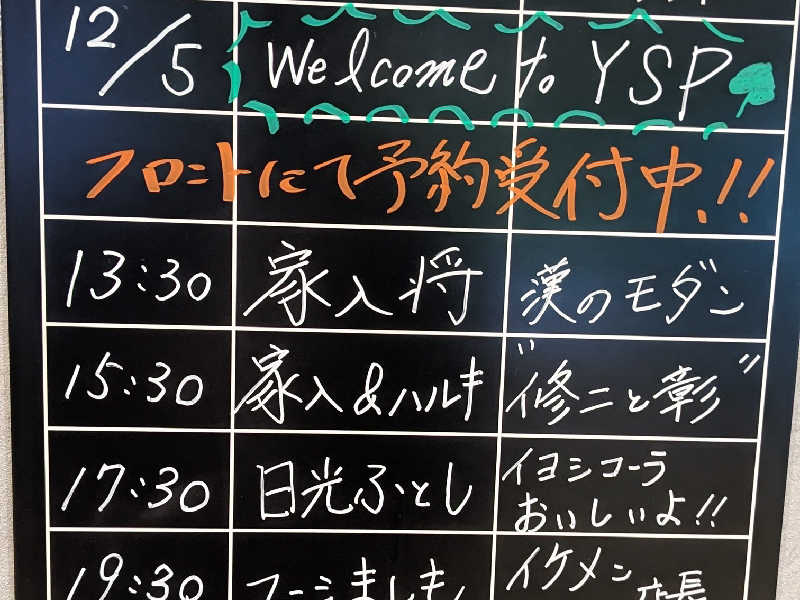 12/5 Welcome to YSP
フロントにて予約受付中!!
13:30 家入将 漢のモダン
15:30 家入&ハルキ "修二と彰"
17:30 日光ふとし イヨシコーラ
おいしいよ!!
19:30 イケメン
店長